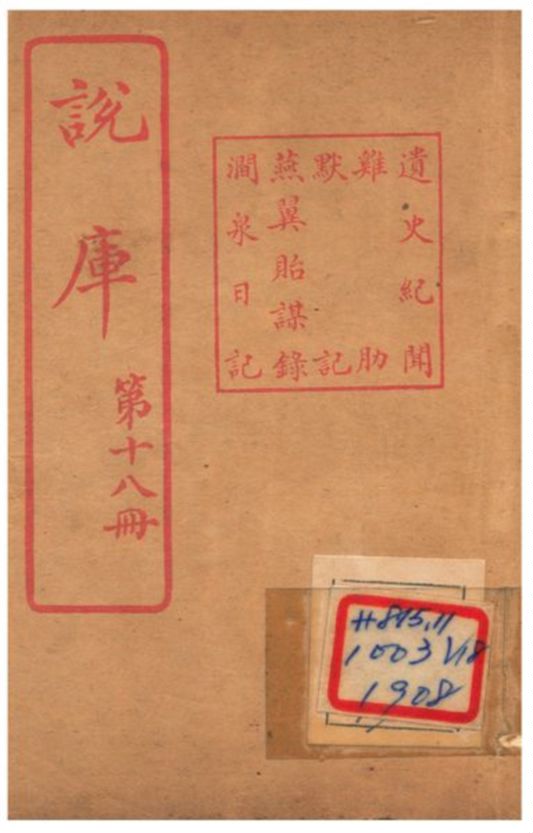 說庫
第十八冊
遺史紀聞
雞肋
默記
燕翼貽謀錄
澗泉日記
H815.11
1003 V18
1908